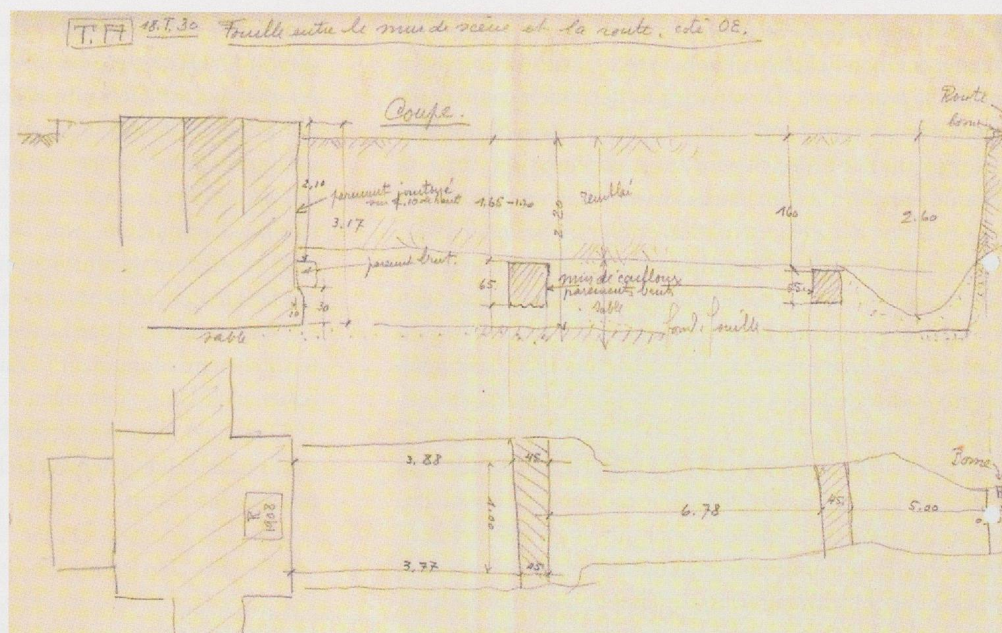 T. A 18.I.30 Fouille entre le mur de scène et la route. coté OE.
Coupe.
Route
borne
2,10
parement jointoyé
sur 2,10 de haut
3.17
1.65-1.70
2.20
remblai
160
2.60
parement brut.
65
mur de cailloux
parements bruts
sable
10
30
sable
fond fouille
3.88
45
Borne
1.00
6.78
45
5.00
R.
1908
3.77
45